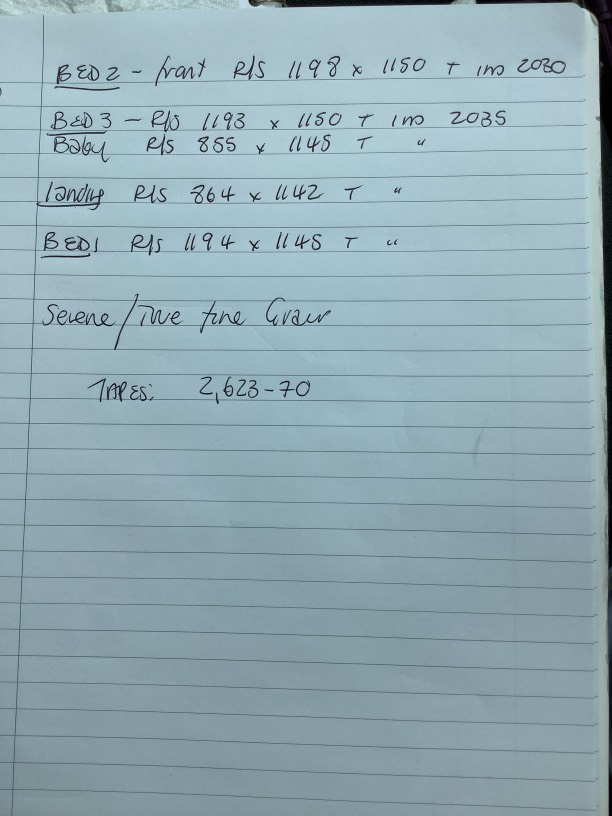 BED 2 - front R/S 1198 x 1150 T 1no 2030
BED 3 - R/S 1193 x 1150 T 1no 2035
Baby R/S 855 x 1145 T "
landing R/S 864 x 1142 T "
BED 1 R/S 1194 x 1145 T "
Serene / True fine Grain
TAPES: 2,623-70